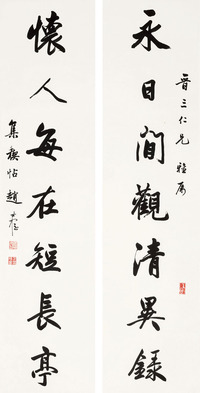 永日閒觀清異錄
晉三仁兄 雅屬
懷人每在短長亭
集稧帖 趙